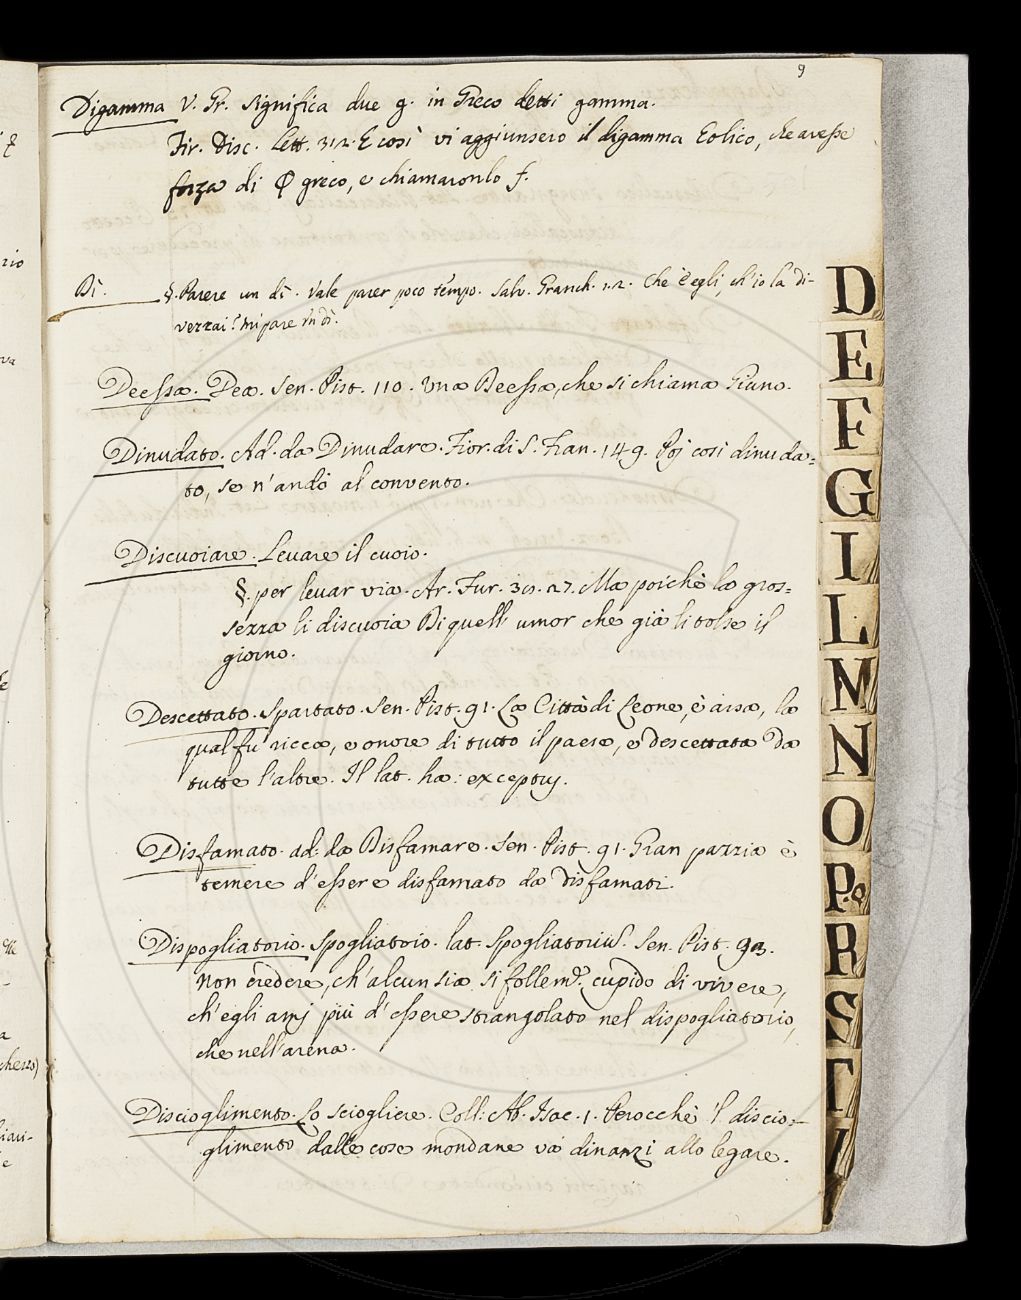 9
Digamma V. Gr. significa due g. in Greco detti gamma.
Fir. Disc. Lett. 312. E così vi aggiunsero il digamma Eolico, che avesse
forza di Φ greco, e chiamaronlo f.
Dì. §. Parere un dì. Vale parer poco tempo. Salv. Granch. 1.2. Che è egli, ch'io la di-
vezzai? mi pare un dì.
Deessa. Dea. Sen. Pist. 110. Una Deessa, che si chiama Giuno.
Dinudato. Ad. da Dinudare. Fior. di S. Fran. 149. Poi così dinuda=
to, se n'andò al convento.
Discuoiare. Levare il cuoio.
§. per levar via. Ar. Fur. 27. Ma poichè la gros=
sezza li discuoia Di quell' umor che già li tolse il
giorno.
Descettato. Spartato. Sen. Pist. 91. La Città di Leone, è arsa, la
qual fu ricca, e onore di tutto il paese, e descettata da
tutte l'altre. Il lat. ha: exceptus.
Disfamato. ad: da Disfamare. Sen. Pist. 91. Gran pazzia è
temere d'essere disfamato da disfamati.
Dispogliatorio. Spogliatorio. lat. Spogliatorium. Sen. Pist.
non credere, ch'alcun sia sì follemte. cupido di vivere,
ch'egli ami più d'essere strangolato nel dispogliatorio,
che nell'arena.
Discioglimento. Lo sciogliere. Coll: Ab. Isac. 1. Perocchè 'l discio-
glimento dalle cose mondane và dinanzi allo legare.
D
E
F
G
I
L
M
N
O
P.Q
R
S
T
V